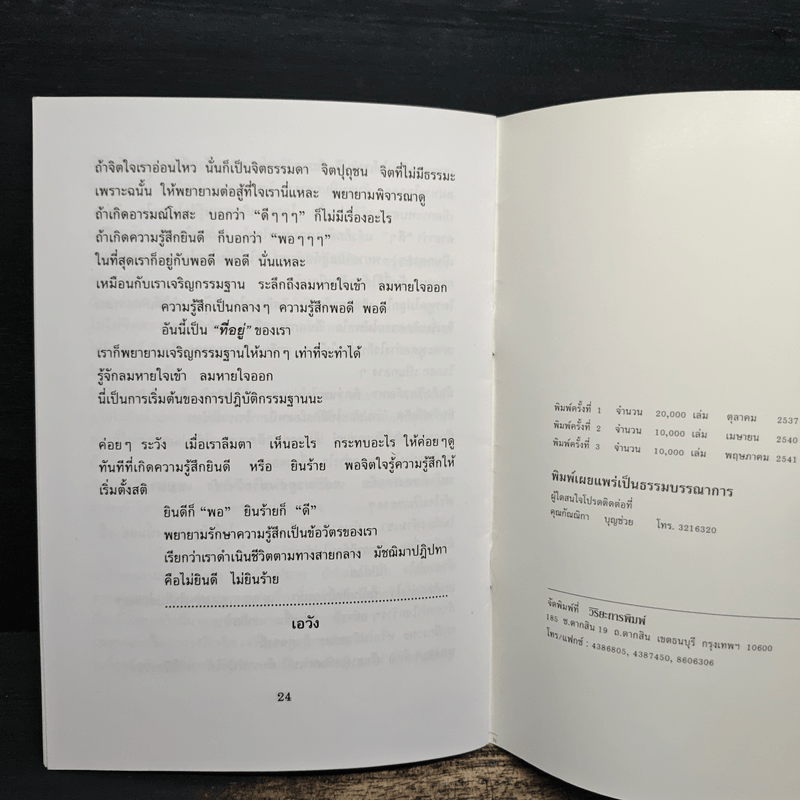 ถ้าจิตใจเราอ่อนไหว นั่นก็เป็นจิตธรรมดา จิตปุถุชน จิตที่ไม่มีธรรมะ
เพราะฉนั้น ให้พยายามต่อสู้ที่ใจเรานี่แหละ พยายามพิจารณาดู
ถ้าเกิดอารมณ์โทสะ บอกว่า “ดีๆๆๆ” ก็ไม่มีเรื่องอะไร
ถ้าเกิดความรู้สึกยินดี ก็บอกว่า “พอๆๆๆ”
ในที่สุดเราก็อยู่กับพอดี พอดี นั่นแหละ
เหมือนกับเราเจริญกรรมฐาน ระลึกถึงลมหายใจเข้า ลมหายใจออก
ความรู้สึกเป็นกลางๆ ความรู้สึกพอดี พอดี
อันนี้เป็น “ที่อยู่” ของเรา
เราก็พยายามเจริญกรรมฐานให้มากๆ เท่าที่จะทำได้
รู้จักลมหายใจเข้า ลมหายใจออก
นี่เป็นการเริ่มต้นของการปฏิบัติกรรมฐานนะ
ค่อยๆ ระวัง เมื่อเราลืมตา เห็นอะไร กระทบอะไร ให้ค่อยๆดู
ทันทีที่เกิดความรู้สึกยินดี หรือ ยินร้าย พอจิตใจรู้ความรู้สึกให้
เริ่มตั้งสติ
ยินดีก็ “พอ” ยินร้ายก็ “ดี”
พยายามรักษาความรู้สึกเป็นข้อวัตรของเรา
เรียกว่าเราดำเนินชีวิตตามทางสายกลาง มัชฌิมาปฏิปทา
คือไม่ยินดี ไม่ยินร้าย
เอวัง
24
พิมพ์ครั้งที่ 1 จำนวน 20,000 เล่ม ตุลาคม 2537
พิมพ์ครั้งที่ 2 จำนวน 10,000 เล่ม เมษายน 2540
พิมพ์ครั้งที่ 3 จำนวน 10,000 เล่ม พฤษภาคม 2541
พิมพ์เผยแพร่เป็นธรรมบรรณาการ
ผู้ใดสนใจโปรดติดต่อที่
คุณกัณณิกา บุญช่วย โทร. 3216320
จัดพิมพ์ที่ วิริยะการพิมพ์
185 ซ.ตากสิน 19 ถ.ตากสิน เขตธนบุรี กรุงเทพฯ 10600
โทร/แฟกซ์ : 4386805, 4387450, 8606306